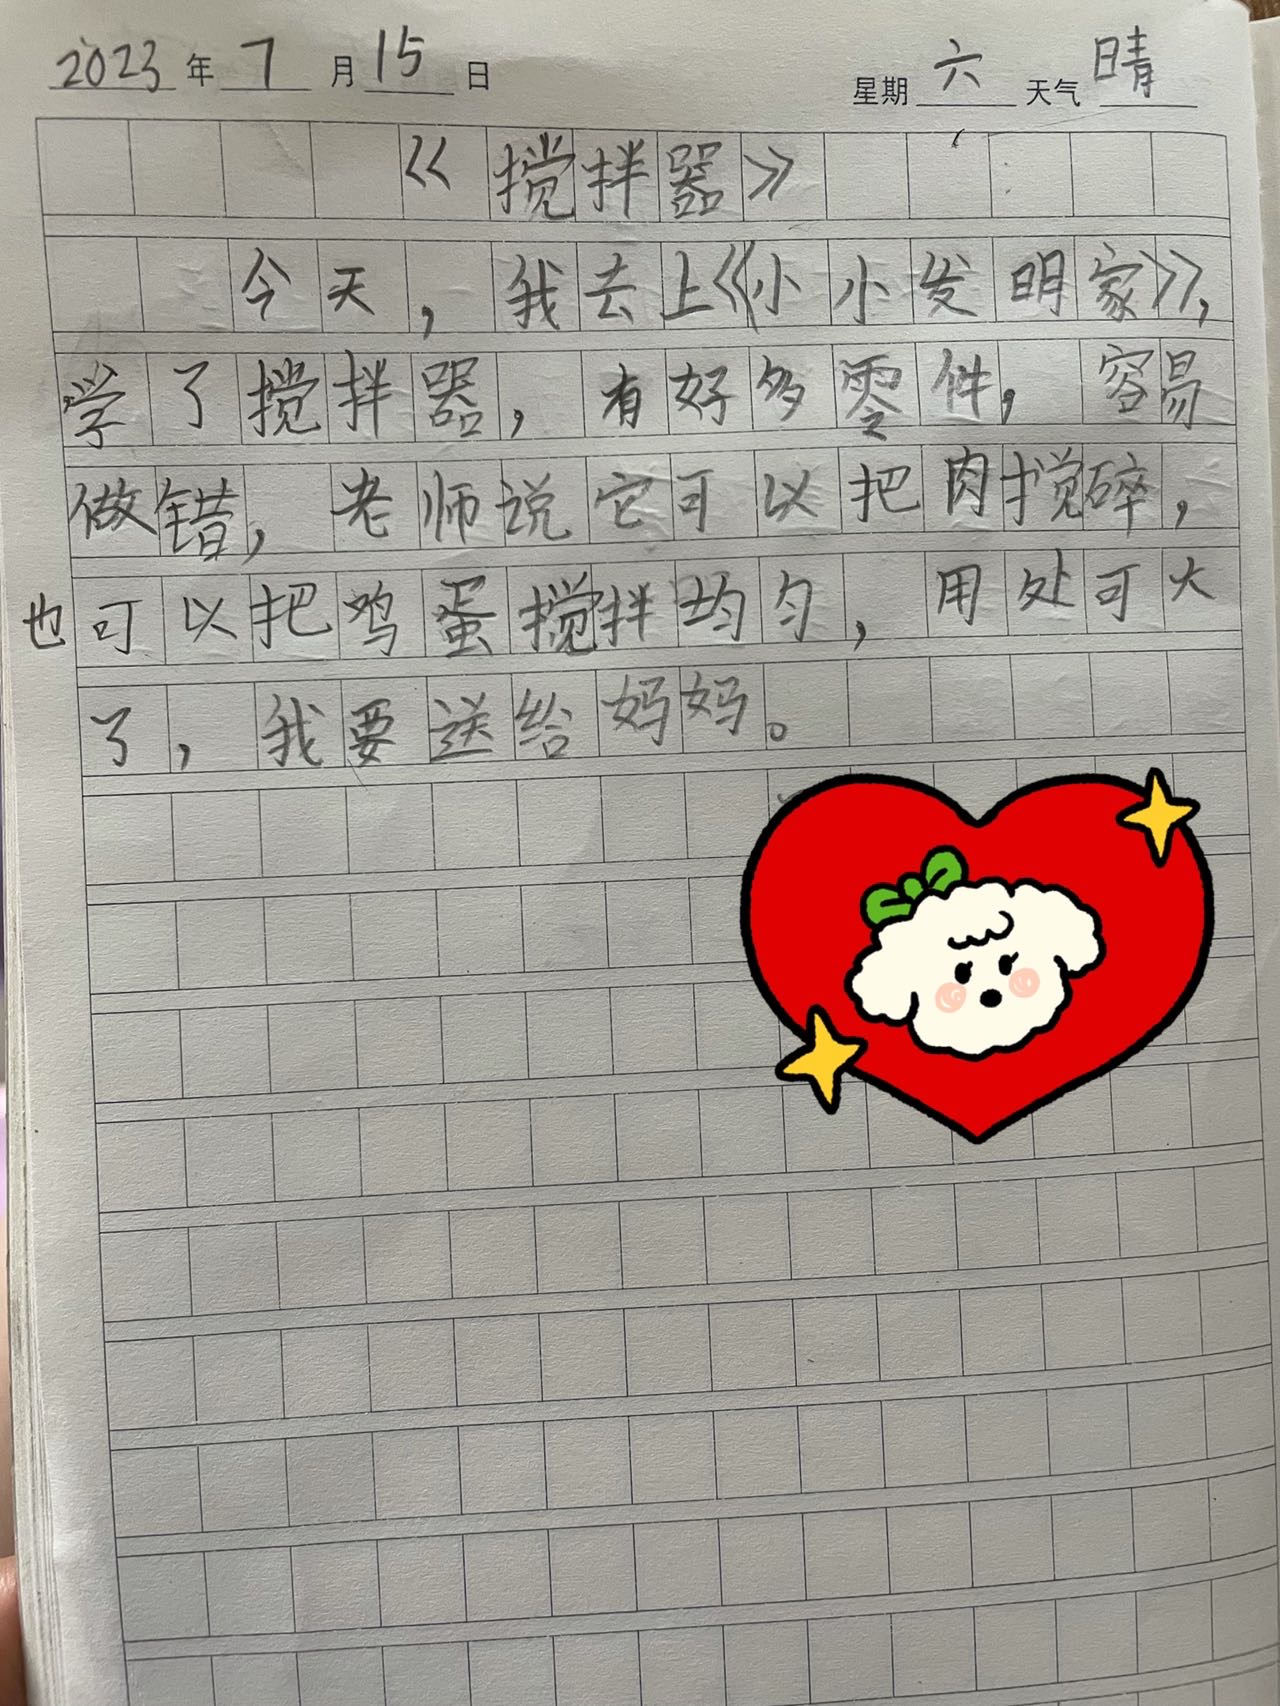 2023年7月15日 星期六 天气晴
《搅拌器》
今天，我去上《小小发明家》，
学了搅拌器，有好多零件，容易
做错，老师说它可以把肉搅碎，
也可以把鸡蛋搅拌均匀，用处可大
了，我要送给妈妈。